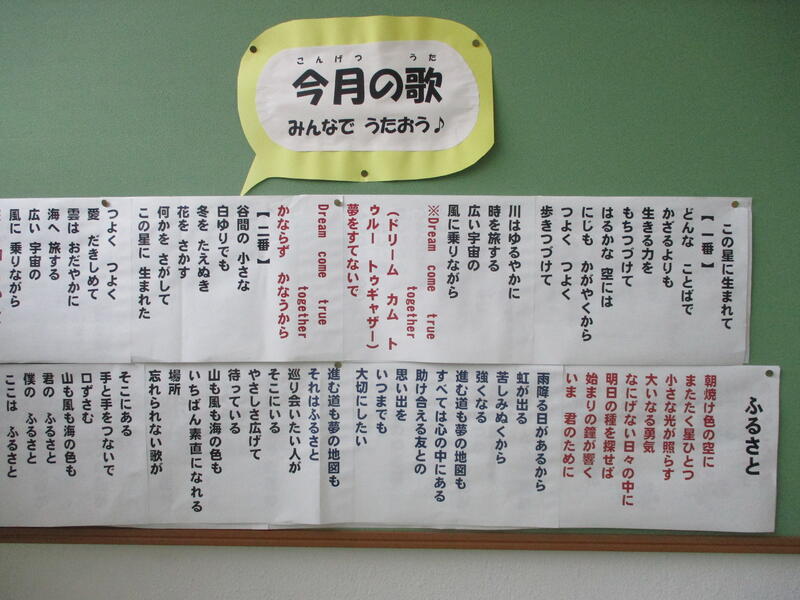 こんげつ うた
今月の歌
みんなで うたおう♪
この星に生まれて
【一番】
どんな ことばで
かざるよりも
生きる力を
もちつづけて
はるかな 空には
にじも かがやくから
つよく つよく
歩きつづけて
川はゆるやかに
時を旅する
広い宇宙の
風に乗りながら
※Dream come true
together
(ドリーム カム ト
ゥルー トゥギャザー)
夢をすてないで
Dream come true
together
かならず かなうから
【二番】
谷間の 小さな
白ゆりでも
冬を たえぬき
花を さかす
何かを さがして
この星に 生まれた
つよく つよく
愛 だきしめて
雲は おだやかに
海へ 旅する
広い 宇宙の
風に 乗りながら
ふるさと
朝焼け色の空に
またたく星ひとつ
小さな光が照らす
大いなる勇気
なにげない日々の中に
明日の種を探せば
始まりの鐘が響く
いま 君のために
雨降る日があるから
虹が出る
苦しみぬくから
強くなる
進む道も夢の地図も
すべては心の中にある
助け合える友との
思い出を
いつまでも
大切にしたい
進む道も夢の地図も
それはふるさと
巡り会いたい人が
そこにいる
やさしさ広げて
待っている
山も風も海の色も
いちばん素直になれる
場所
忘れられない歌が
そこにある
手と手をつないで
口ずさむ
山も風も海の色も
君の ふるさと
僕の ふるさと
ここは ふるさと